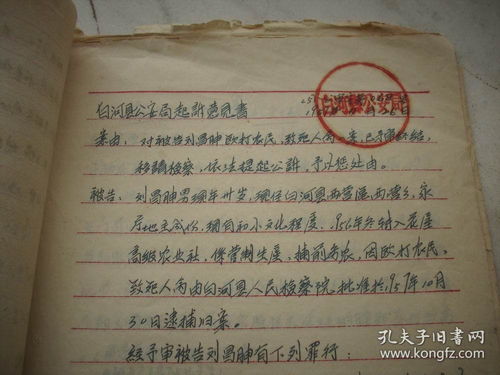 白河县公安局起訴意見書
白河縣公安局
案由：对被告刘昌胂欧打农民，致死人命一案，已予審終结，
移請检察，依法提起公訴，予以惩处由。
被告：刘昌胂男现年卅岁，现住白河县西营區西营乡，家
庭地主成份，现自初小文化程度，1956年冬转入花屋
高级农业社，係管制生産，捕前务农，因欧打农民，
致死人命由白河县人民检察院批准於1957年10月
30日逮捕归案。
经予审被告刘昌胂有下列罪行：
孔夫子旧書网
www.kongfz.com